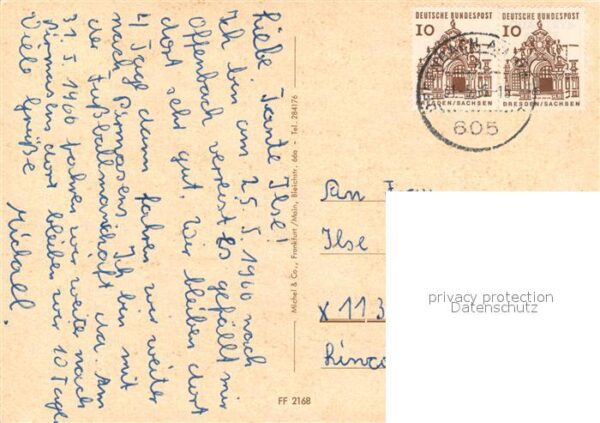 Liebe Tante Ilse!
Ich bin am 25.5.1900 nach
Offenbach verreist. Es gefällt mir
dort sehr gut, wir bleiben dort
4 Tage dann fahren wir weiter
nach Pirmasens. Ich bin mit
der Fußballmannschaft da. Am
31.5.1900 fahren wir weiter nach
Pirmasens dort bleiben wir 10 Tage.
Viele Grüße
Michael.
Michel & Co., Frankfurt/Main, Bleichstr. 66a - Tel. 284176
DEUTSCHE BUNDESPOST
10
DRESDEN/SACHSEN
DEUTSCHE BUNDESPOST
10
DRESDEN/SACHSEN
605
An Frau
Ilse
X 113
privacy protection
Datenschutz
FF 2168